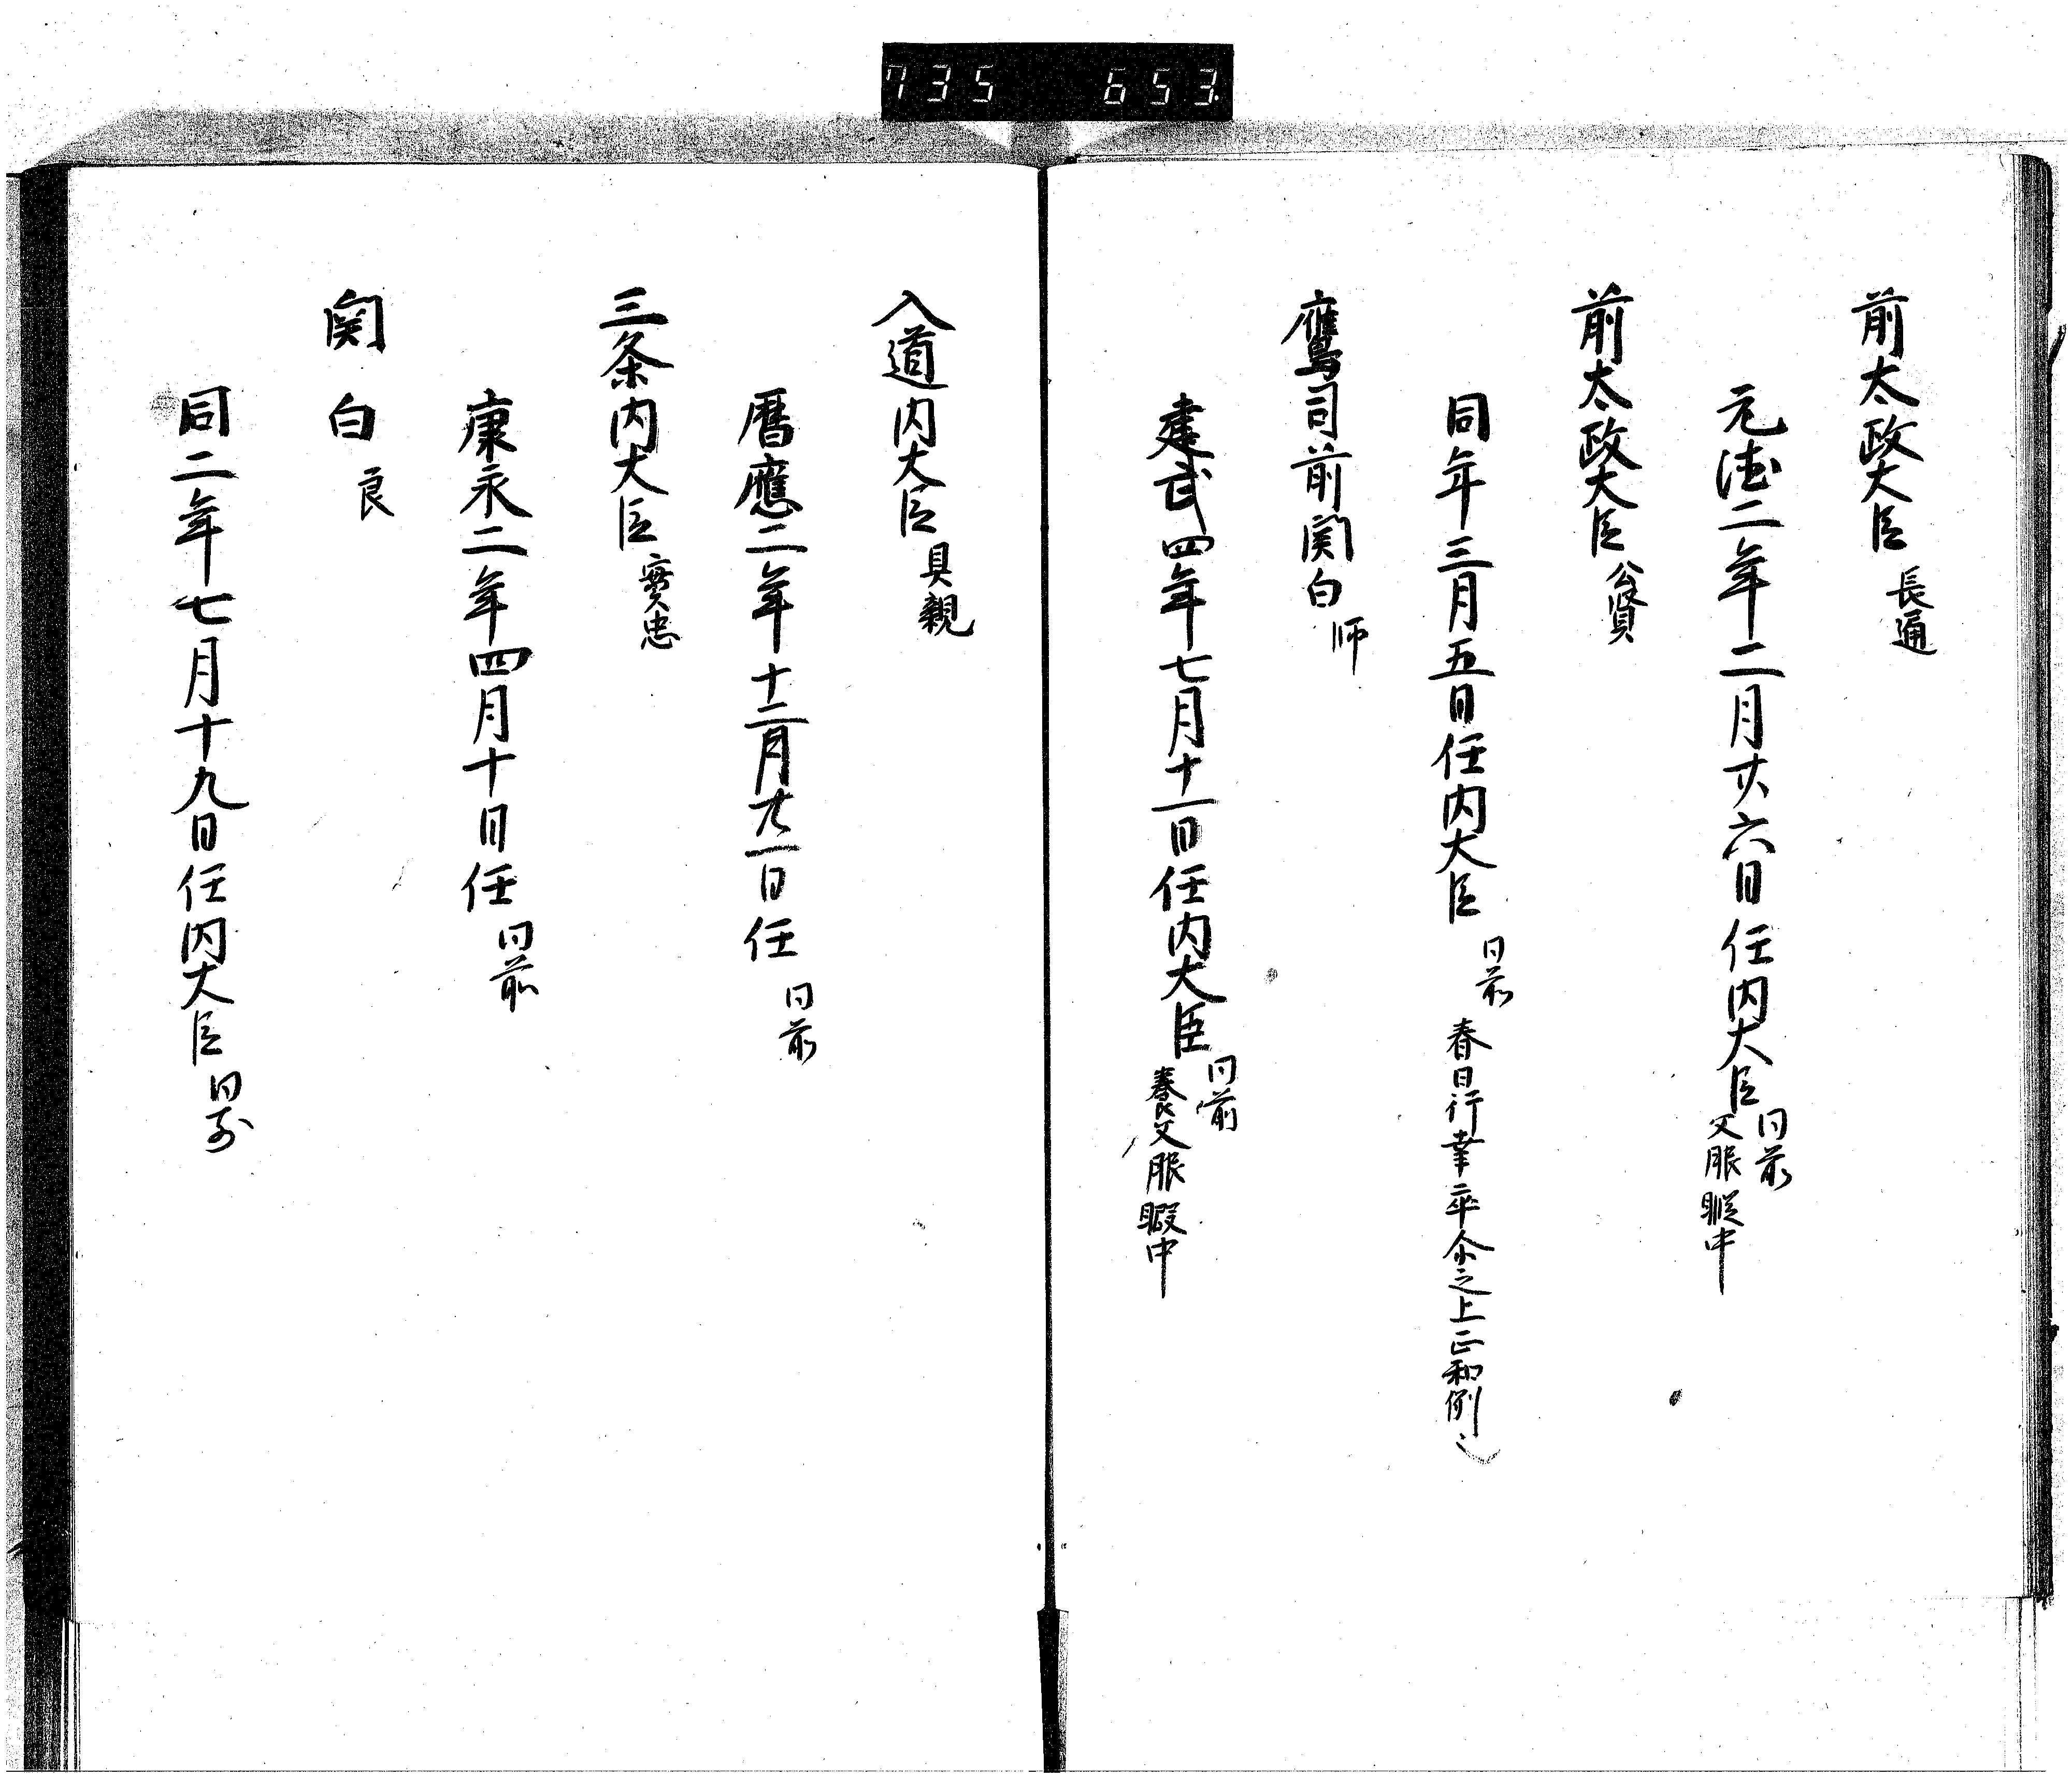 735 653
前太政大臣 長通
元徳二年二月廿六日任内大臣 同前 父服暇中
前太政大臣 公賢
同年三月五日任内大臣 同前 春日行幸卒尒之上正和例也
鷹司前関白 師
建武四年七月十一日任内大臣 同前 養父服暇中
入道内大臣 具親
暦應二年十二月廿一日任 同前
三条内大臣 實忠
康永二年四月十日任 同前
関白 良
同二年七月十九日任内大臣 同前